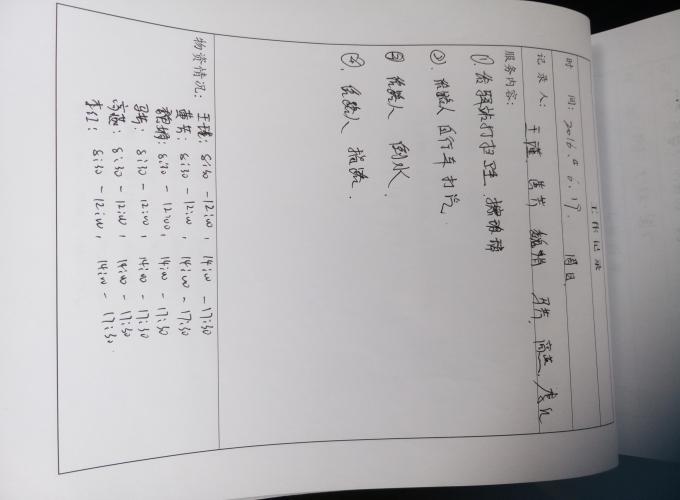 工作记录
时 间：2016.6.19. 周日.
记录人：王瑾、黄芳 魏娟 马芳、
服务内容：
①.给驿站打扫卫生、擦玻璃
②.给路人自行车打汽.
③ 给路人 倒水.
④.给路人 指路.
物资情况：王瑾：8:30-12:00， 14:00-17:30
黄芳：8:30-12:00， 14:00-17:30
魏娟：8:30-12:00， 14:00-17:30
马芳：8:30-12:00， 14:00-17:30
8:30-12:00， 14:00-17:30
李红：8:30-12:00， 14:00-17:30.